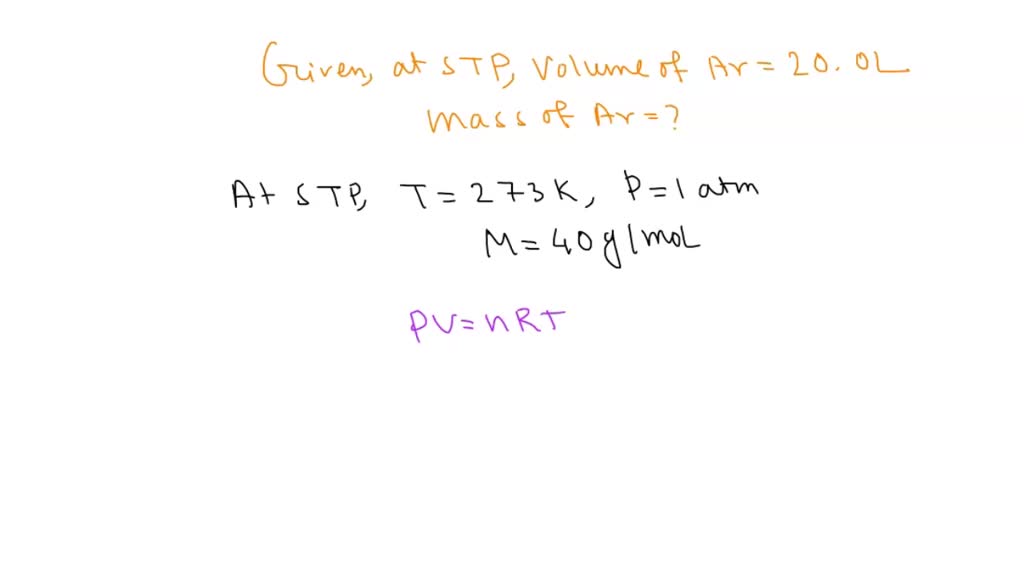 Given, at STP, Volume of Ar = 20.0L
mass of Ar = ?
At STP, T = 273K, P = 1 atm
M = 40g/mol
PV = nRT